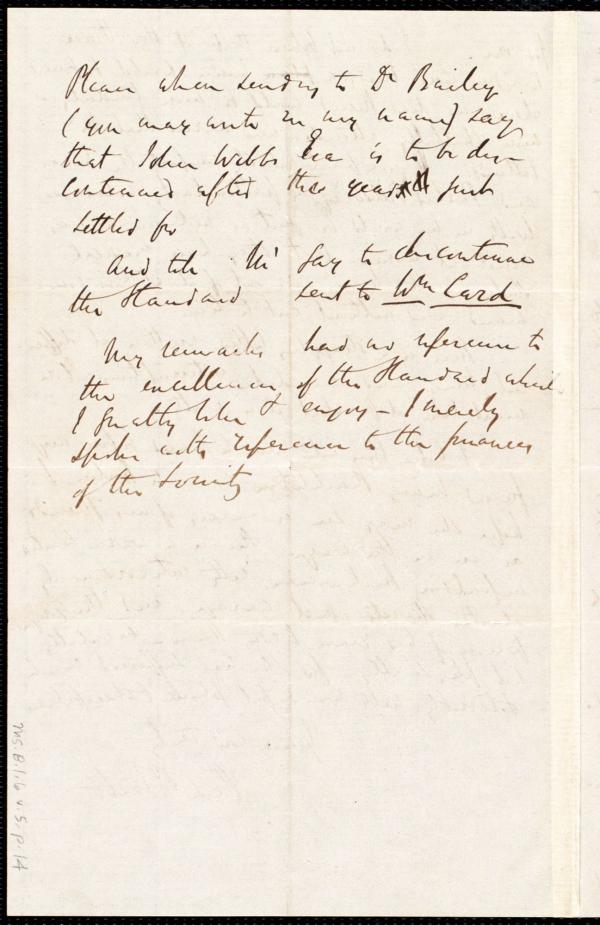 Please when sending to Dr Bailey
(you may write in my name) say
that John Webbs Era is to be dis-
continued after the years just
settled for
And tell Mr Gay to discontinue
the Standard sent to Wm Card
My remarks had no reference to
the excellency of the Standard which
I greatly like & enjoy - I merely
spoke with reference to the finances
of the Society
Ms.B.1.6 v.5, p.14